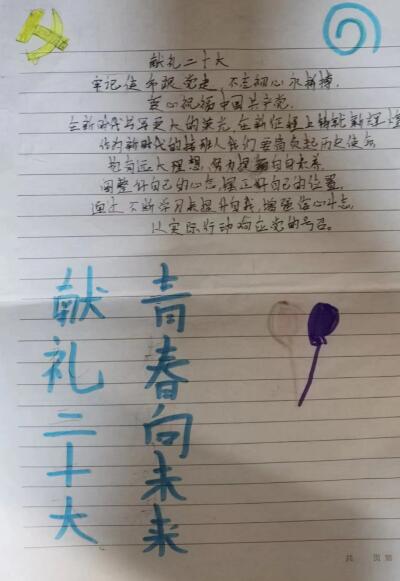 献礼二十大
牢记使命跟党走,不忘初心永拼搏.
衷心祝福中国共产党.
在新时代书写更大的荣光,在新征程上铸就新辉煌
作为新时代的接班人我们要肩负起历史使命
树高远大理想,努力提高自身素养.
调整好自己的心态,摆正好自己的位置.
通过不断学习来提升自我,增强信心斗志.
以实际行动响应党的号召.
青春向未来
献礼二十大
共 页 第